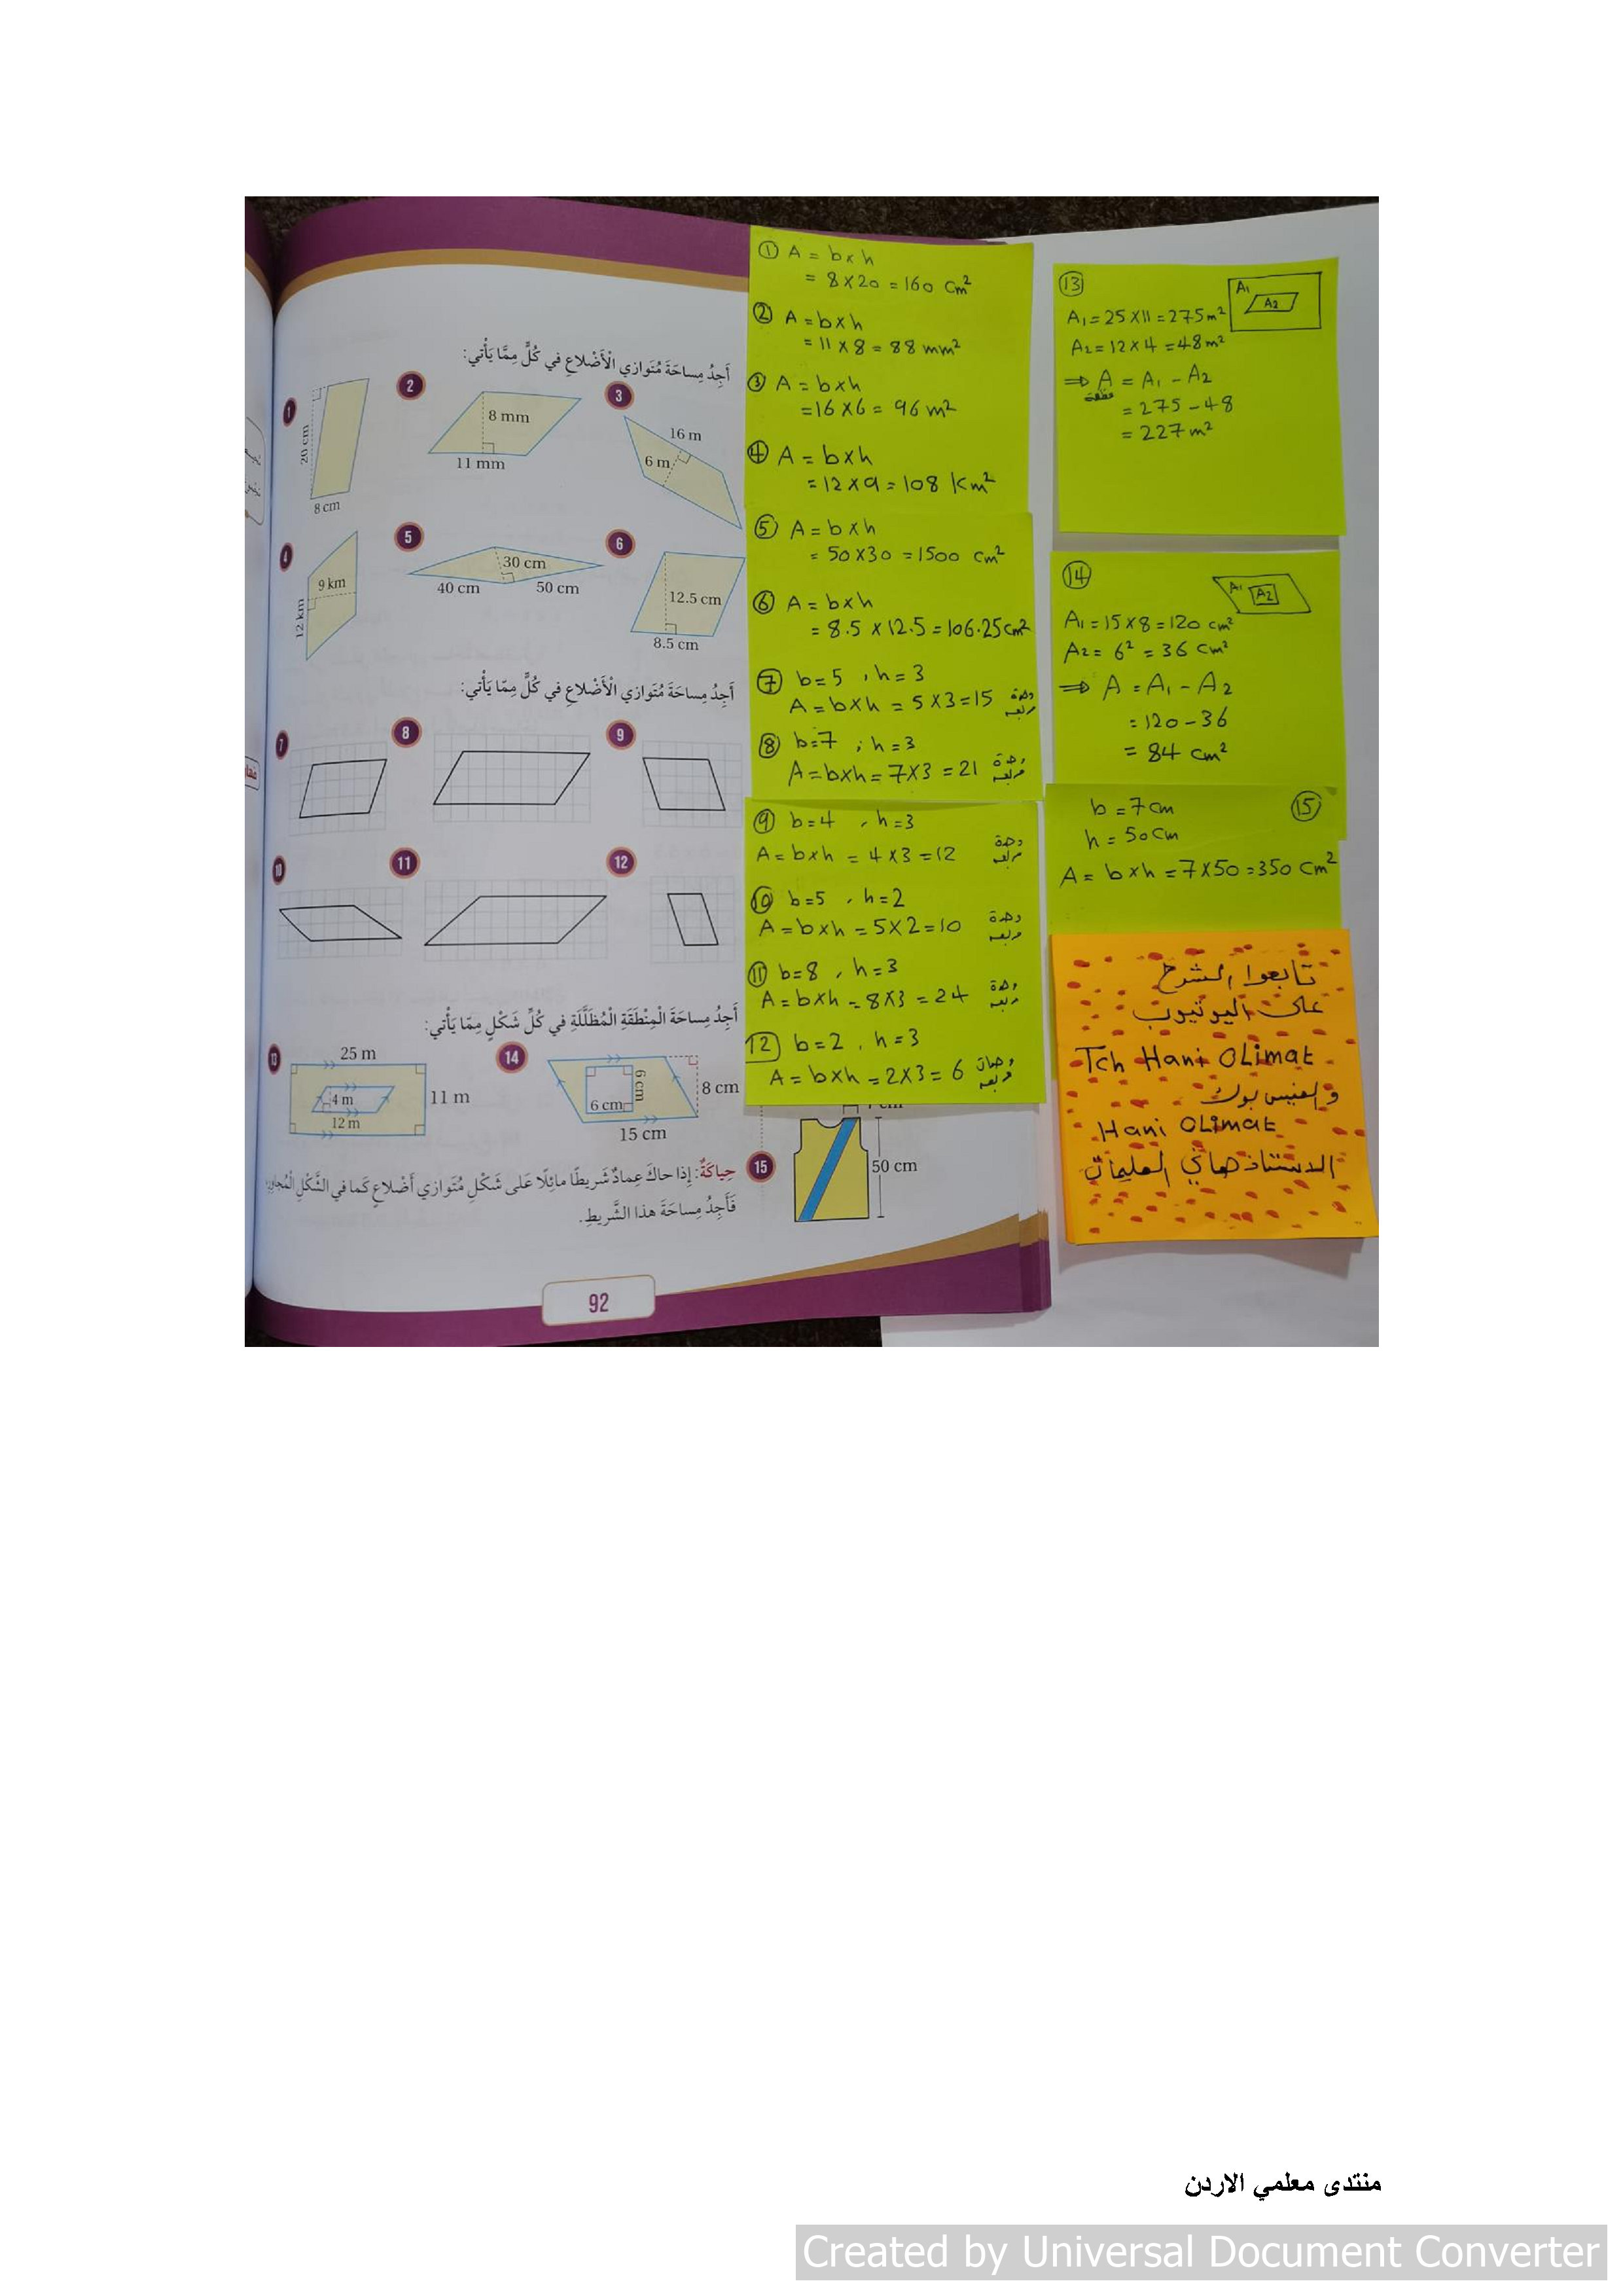 أَجِدُ مِساحَةَ مُتَوازي الْأَضْلاعِ في كُلٍّ مِمَّا يَأْتي:
1
20 cm
8 cm
2
8 mm
11 mm
3
16 m
6 m
4
9 km
12 km
5
30 cm
40 cm
50 cm
6
12.5 cm
8.5 cm
أَجِدُ مِساحَةَ مُتَوازي الْأَضْلاعِ في كُلٍّ مِمّا يَأْتي:
7
8
9
10
11
12
أَجِدُ مِساحَةَ الْمِنْطَقَةِ الْمُظَلَّلَةِ في كُلِّ شَكْلٍ مِمّا يَأْتي:
13
25 m
11 m
4 m
12 m
14
6 cm
6 cm
8 cm
15 cm
15
حِياكَةٌ: إِذا حاكَ عِمادٌ شَريطًا مائِلًا عَلى شَكْلِ مُتَوازي أَضْلاعٍ كَما في الشَّكْلِ الْمُجاوِرِ،
فَأَجِدُ مِساحَةَ هذا الشَّريطِ.
50 cm
92
① A = b×h
= 8×20 = 160 cm²
② A = b×h
= 11×8 = 88 mm²
③ A = b×h
= 16×6 = 96 m²
④ A = b×h
= 12×9 = 108 km²
⑤ A = b×h
= 50×30 = 1500 cm²
⑥ A = b×h
= 8.5×12.5 = 106.25 cm²
⑦ b=5 , h=3
A = b×h = 5×3 = 15 وحدة مربعه
⑧ b=7 , h=3
A = b×h = 7×3 = 21 وحدة مربعه
⑨ b=4 , h=3
A = b×h = 4×3 = 12 وحدة مربعه
⑩ b=5 , h=2
A = b×h = 5×2 = 10 وحدة مربعه
⑪ b=8 , h=3
A = b×h = 8×3 = 24 وحدة مربعه
12 b=2 , h=3
A = b×h = 2×3 = 6 وحدات مربعه
⑬
A₁ A₂
A₁ = 25×11 = 275 m²
A₂ = 12×4 = 48 m²
⇒ A = A₁ - A₂
= 275 - 48
= 227 m²
⑭
A₁ A₂
A₁ = 15×8 = 120 cm²
A₂ = 6² = 36 cm²
⇒ A = A₁ - A₂
= 120 - 36
= 84 cm²
⑮
b = 7 cm
h = 50 cm
A = b×h = 7×50 = 350 cm²
تابعوا الشرح
على اليوتيوب
Tch Hani OLimat
والفيس بوك
Hani OLimat
الاستاذ هاني العليمات
منتدى معلمي الاردن
Created by Universal Document Converter